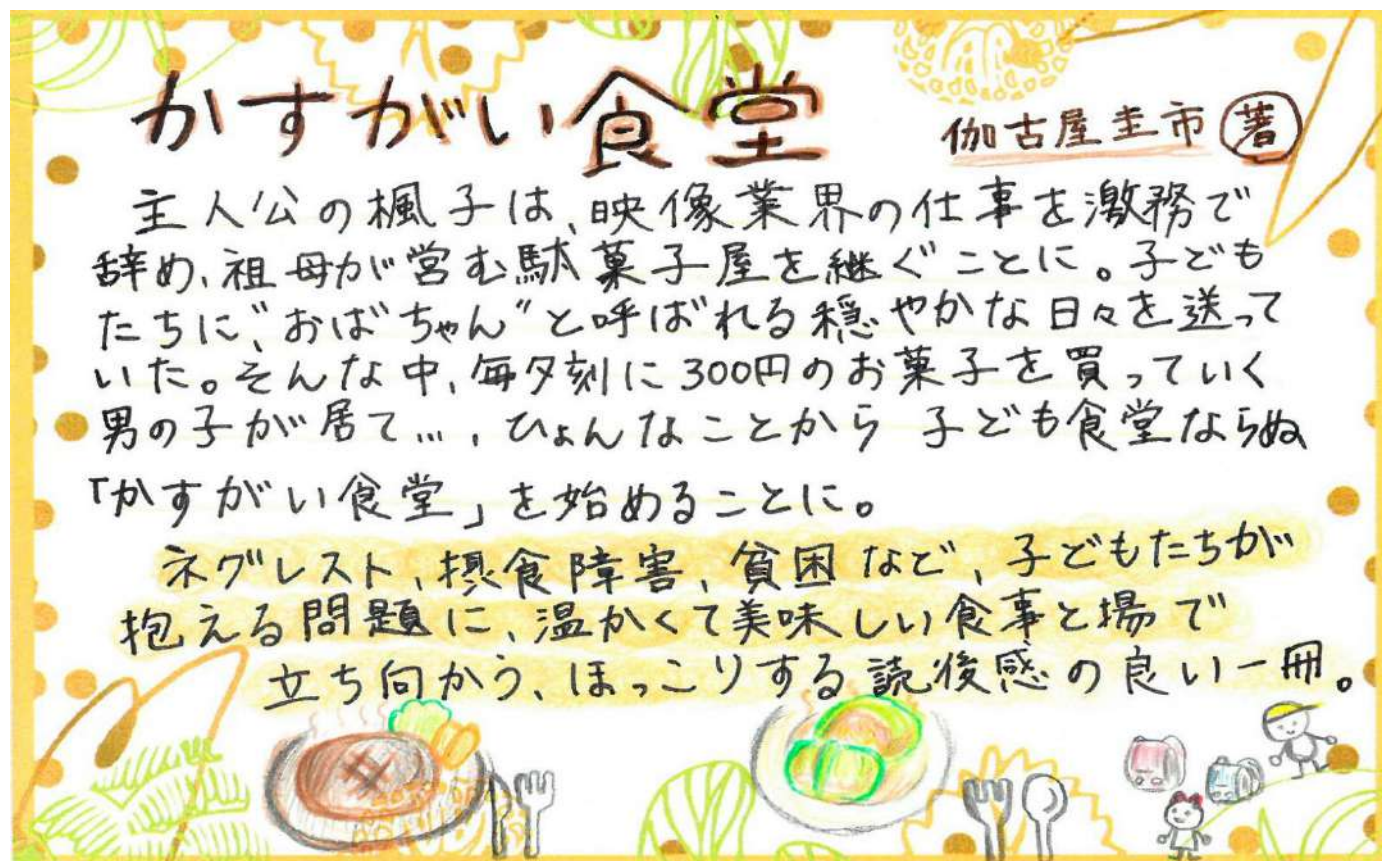 かすがい食堂
伽古屋圭市 著
主人公の楓子は、映像業界の仕事を激務で
辞め、祖母が営む駄菓子屋を継ぐことに。子ども
たちに"おばちゃん"と呼ばれる穏やかな日々を送って
いた。そんな中、毎夕刻に300円のお菓子を買っていく
男の子が居て…、ひょんなことから 子ども食堂ならぬ
「かすがい食堂」を始めることに。
ネグレスト、摂食障害、貧困など、子どもたちが
抱える問題に、温かくて美味しい食事と場で
立ち向かう、ほっこりする読後感の良い一冊。